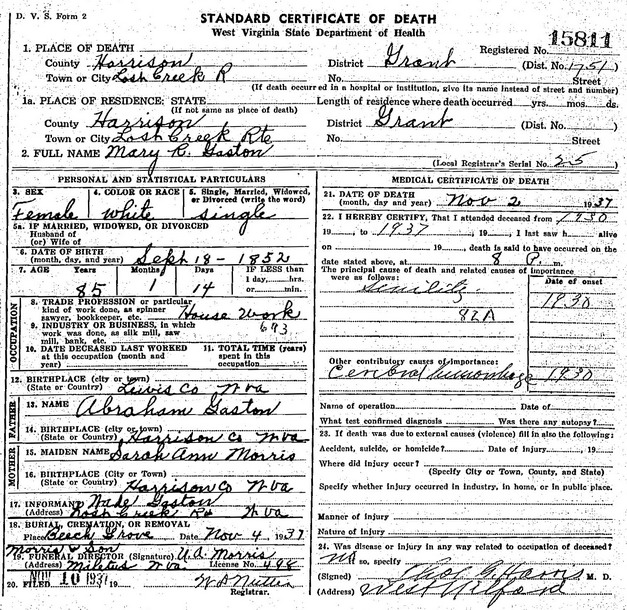 D. V. S. Form 2
STANDARD CERTIFICATE OF DEATH
West Virginia State Department of Health
15811
Registered No.
1. PLACE OF DEATH
County Harrison District Grant (Dist. No. 1751)
Town or City Losh Creek R No. Street
(If death occurred in a hospital or institution, give its name instead of street and number)
1a. PLACE OF RESIDENCE: STATE Length of residence where death occurred yrs. mos. ds.
(If not same as place of death)
County Harrison District Grant (Dist. No. )
Town or City Losh Creek Rte No. Street
2. FULL NAME Mary C. Gaston
(Local Registrar's Serial No. 25
PERSONAL AND STATISTICAL PARTICULARS
3. SEX Female
4. COLOR OR RACE White
5. Single, Married, Widowed, or Divorced (write the word) single
5a. IF MARRIED, WIDOWED, OR DIVORCED
Husband of
(or) Wife of
6. DATE OF BIRTH
(month, day, and year) Sept 18 - 1852
7. AGE Years 85 Months 1 Days 14 IF LESS than 1 day, hrs. or min.
OCCUPATION
8. TRADE PROFESSION or particular
kind of work done, as spinner
sawyer, bookkeeper, etc. House Work
693
9. INDUSTRY OR BUSINESS, in which
work was done, as silk mill, saw
mill, bank, etc.
10. DATE DECEASED LAST WORKED
at this occupation (month and
year)
11. TOTAL TIME (years)
spent in this
occupation
12. BIRTHPLACE (city or town)
(State or Country) Lewis Co W va
FATHER
13. NAME Abraham Gaston
14. BIRTHPLACE (city or town)
(State or Country) Harrison Co W va
MOTHER
15. MAIDEN NAME Sarah Ann Morris
16. BIRTHPLACE (City or Town)
(State or Country) Harrison Co W va
17. INFORMANT Wade Gaston
(Address) Losh Creek Rt W va
18. BURIAL, CREMATION, OR REMOVAL
Place Beech Grove Date Nov 4 1937
Morris & Son
19. FUNERAL DIRECTOR (Signature) U. A. Morris
(Address) Miletus W va. License No. 498
20. FILED NOV 10 1937 19
Registrar.
MEDICAL CERTIFICATE OF DEATH
21. DATE OF DEATH
(month, day and year) Nov 2 1937
22. I HEREBY CERTIFY, That I attended deceased from 1930
19 , to 1937 19 , I last saw h alive
on 19 , death is said to have occurred on the
date stated above, at 8 P. m.
The principal cause of death and related causes of importance
were as follows:
Date of onset
Senility 1930
82A
Other contributory causes of importance:
Cerebral hemorrhage 1930
Name of operation Date of
What test confirmed diagnosis Was there any autopsy?
23. If death was due to external causes (violence) fill in also the following:
Accident, suicide, or homicide? Date of injury , 19
Where did injury occur?
(Specify City or Town, County, and State)
Specify whether injury occurred in Industry, in home, or in public place.
Manner of Injury
Nature of Injury
24. Was disease or injury in any way related to occupation of deceased?
If so, specify
(Signed) M. D.
(Address) West Milford